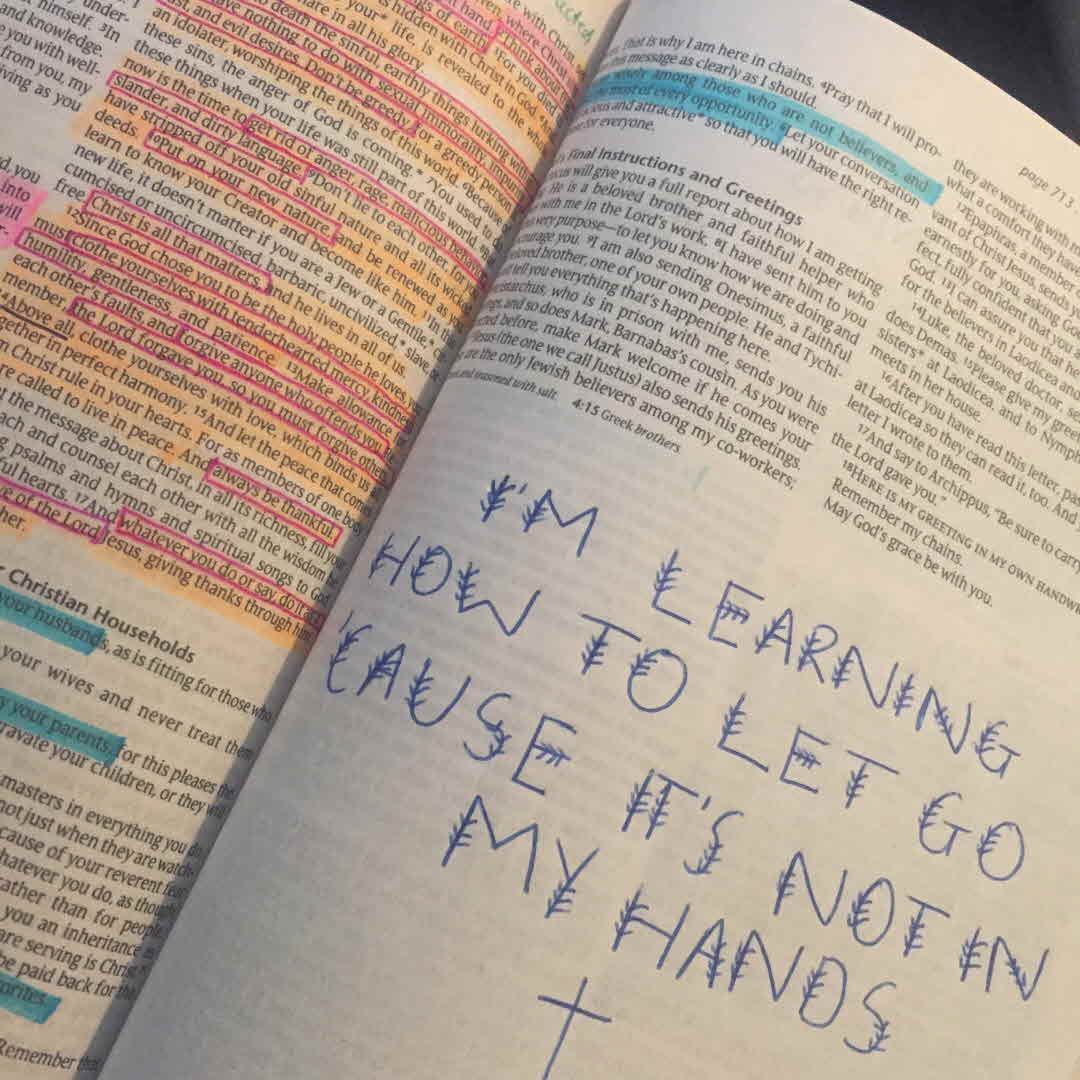 under-
himself. ³In
and knowledge.
e you with well-
from you, my
iving as you
d you
into
will
have nothing to do with sexual immorality, impurity,
lust, and evil desires. Don't be greedy, for a greedy person
an idolater, worshiping the things of this world. ⁶Because
these sins, the anger of God is coming.* ⁷You used to
these things when your life was still part of this world.
now is the time to get rid of anger, rage, malicious behavior,
slander, and dirty language. ⁹Don't lie to each other, for
have stripped off your old sinful nature and all its wicked
deeds. ¹⁰Put on your new nature, and be renewed as
learn to know your Creator and become like him.
new life, it doesn't matter if you are a Jew or a Gentile,*
cumcised or uncircumcised, barbaric, uncivilized,* slave,
free. Christ is all that matters, and he lives in all of us.
¹²Since God chose you to be the holy people he loves,
must clothe yourselves with tenderhearted mercy, kindness,
humility, gentleness, and patience. ¹³Make allowance for
each other's faults, and forgive anyone who offends you.
member, the Lord forgave you, so you must forgive others.
¹⁴Above all, clothe yourselves with love, which binds us
together in perfect harmony. ¹⁵And let the peace that comes
m Christ rule in your hearts. For as members of one body
re called to live in peace. And always be thankful.
t the message about Christ, in all its richness, fill your
each and counsel each other with all the wisdom he
g psalms and hymns and spiritual songs to God
ful hearts. ¹⁷And whatever you do or say, do it as a
ve of the Lord Jesus, giving thanks through him
ther.
r Christian Households
your husbands, as is fitting for those who
your wives and never treat them
y your parents, for this pleases the
ravate your children, or they will
masters in everything you do.
not just when they are watch-
cause of your reverent fear
hatever you do, as though
rather than for people.
you an inheritance as
are serving is Christ.*
be paid back for the
orites.
Remember that
page 713
That is why I am here in chains. ⁴Pray that I will pro-
this message as clearly as I should.
wisely among those who are not believers, and
the most of every opportunity. ⁶Let your conversation
cious and attractive* so that you will have the right re-
se for everyone.
Final Instructions and Greetings
us will give you a full report about how I am getting
He is a beloved brother and faithful helper who
with me in the Lord's work. ⁸I have sent him to you
very purpose—to let you know how we are doing and
courage you. ⁹I am also sending Onesimus, a faithful
loved brother, one of your own people. He and Tychi-
tell you everything that's happening here.
starchus, who is in prison with me, sends you his
gs, and so does Mark, Barnabas's cousin. As you were
cted before, make Mark welcome if he comes your
Jesus (the one we call Justus) also sends his greetings.
are the only Jewish believers among my co-workers;
and seasoned with salt. 4:15 Greek brothers
they are working with m
what a comfort they have
¹²Epaphras, a member o
vant of Christ Jesus, sends y
earnestly for you, asking God
fect, fully confident that you a
God. ¹³I can assure you that he
for the believers in Laodicea and
¹⁴Luke, the beloved doctor, se
does Demas. ¹⁵Please give my greeti
sisters* at Laodicea, and to Nymph
meets in her house.
¹⁶After you have read this letter, pas
at Laodicea so they can read it, too. And
letter I wrote to them.
¹⁷And say to Archippus, "Be sure to carry
the Lord gave you."
¹⁸HERE IS MY GREETING IN MY OWN HANDW
Remember my chains.
May God's grace be with you.
I'M LEARNING
HOW TO LET GO
'CAUSE IT'S NOT IN
MY HANDS